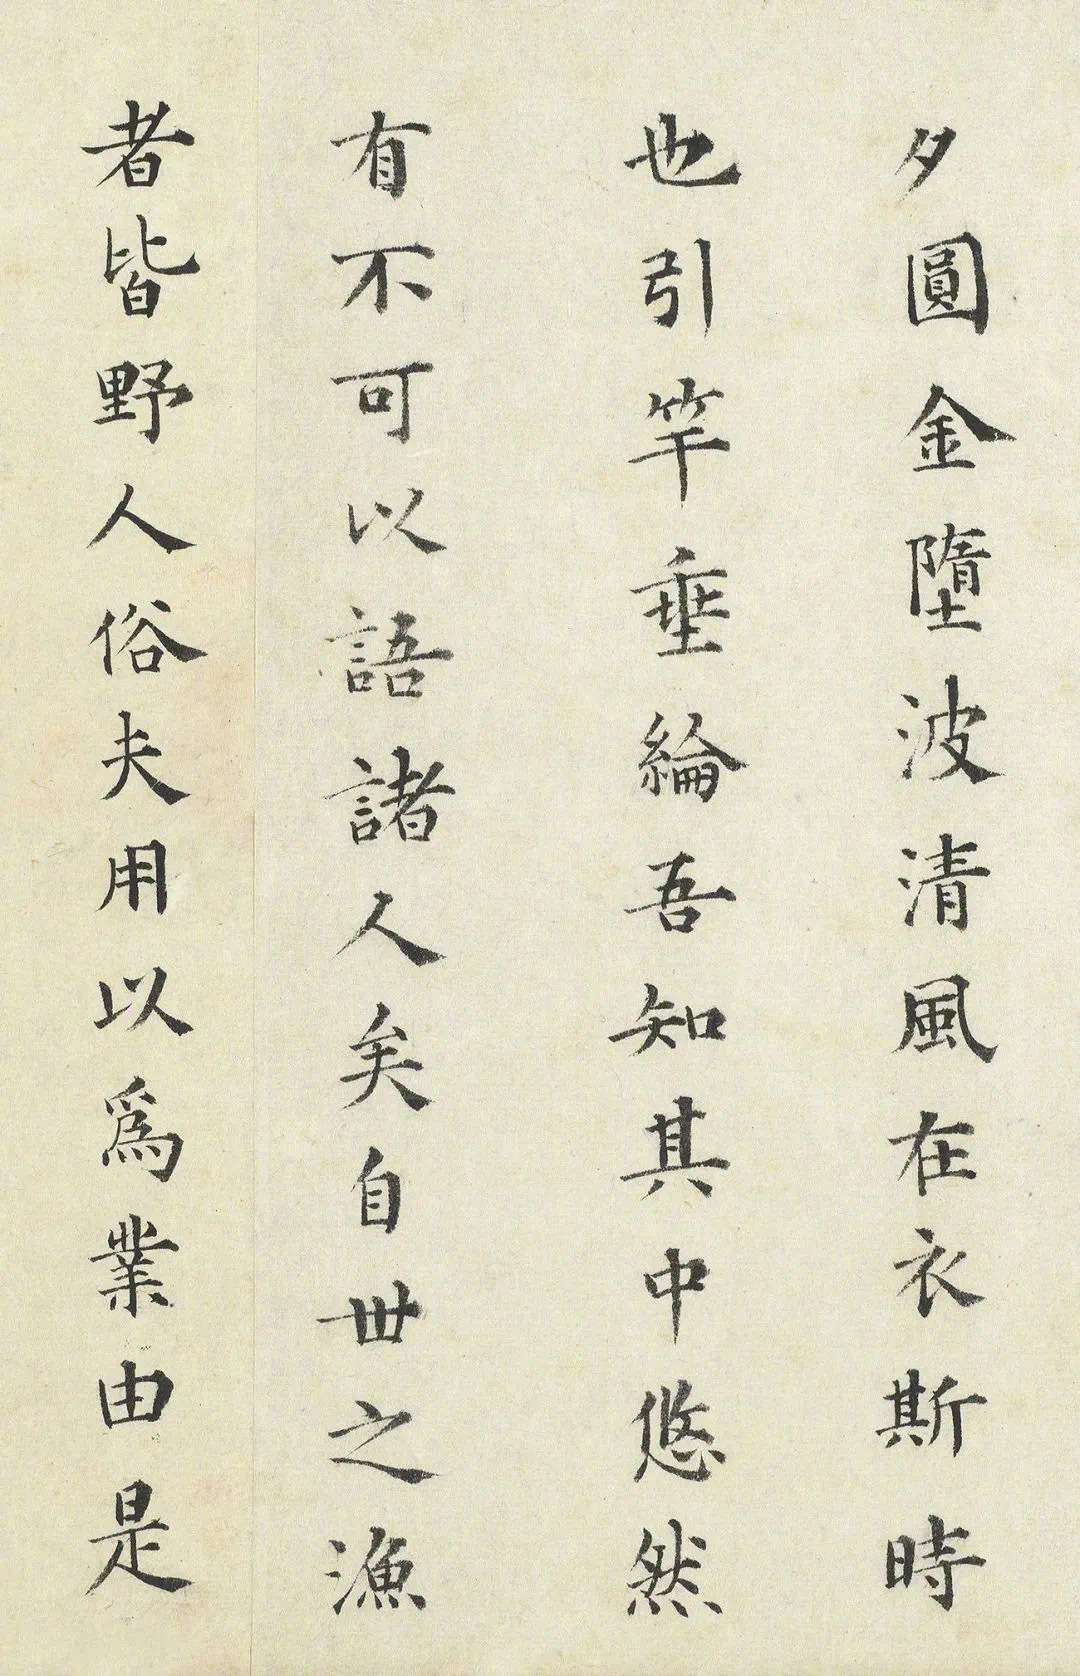 夕圓金墮波清風在衣斯時
也引竿垂綸吾知其中悠然
有不可以語諸人矣自世之漁
者皆野人俗夫用以爲業由是